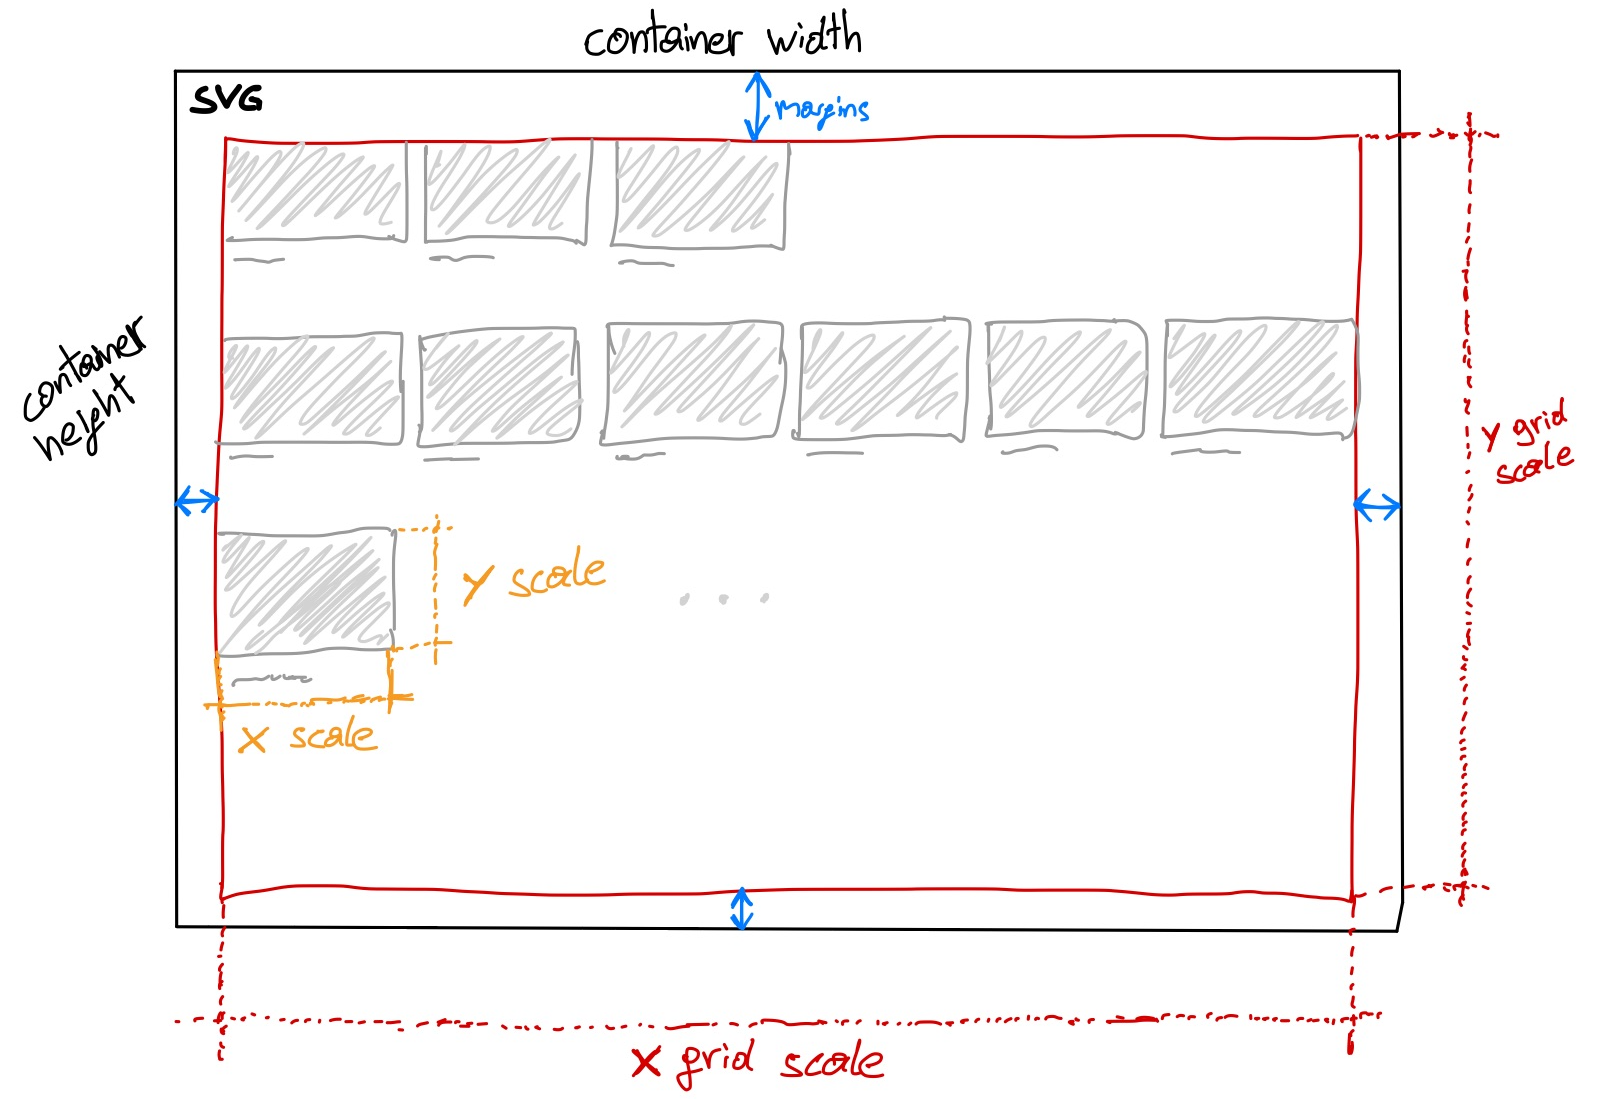 container width
SVG
margins
container
height
Y grid
scale
Y scale
X scale
X grid scale